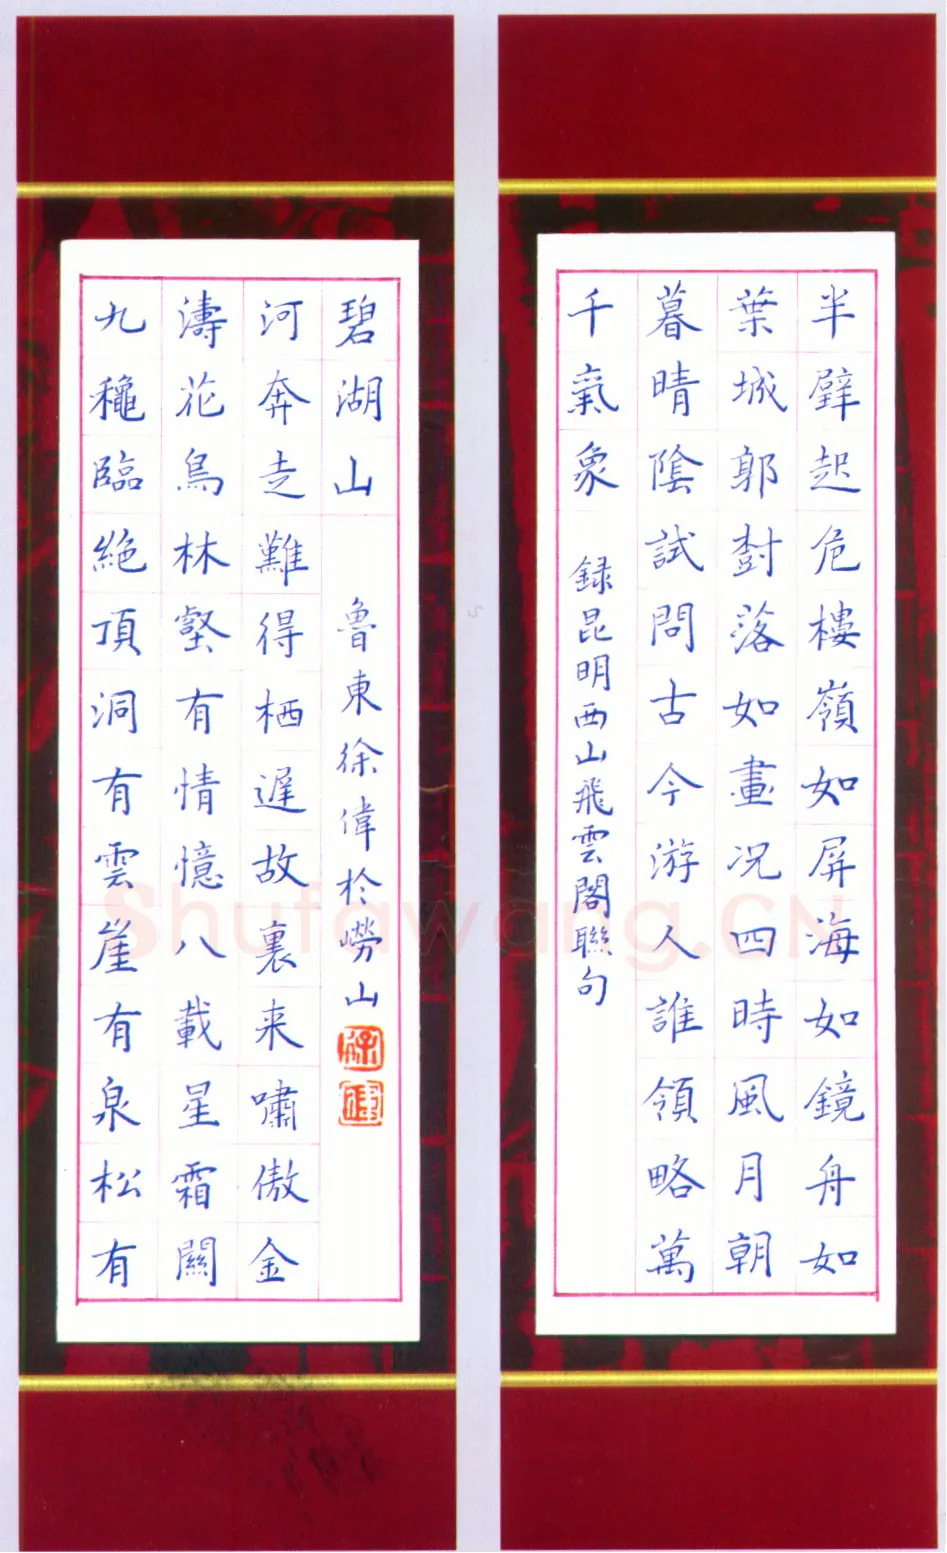 半壁起危樓嶺如屏海如鏡舟如
葉城郭對落如畫况四時風月朝
暮晴陰試問古今游人誰領略萬
千氣象
錄昆明西山飛雲閣聯句
九穐臨絕頂洞有雲崖有泉松有
濤花鳥林壑有情憶八載星霜關
河奔走難得栖遲故裏来嘯傲金
碧湖山
魯東徐偉於嶗山
徐
偉
Shufawang.CN